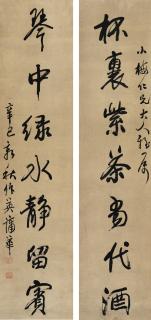 小梅仁兄大人雅属
杯裏紫茶香代酒
琴中緑水静留賓
辛巳新秋作英蒲華